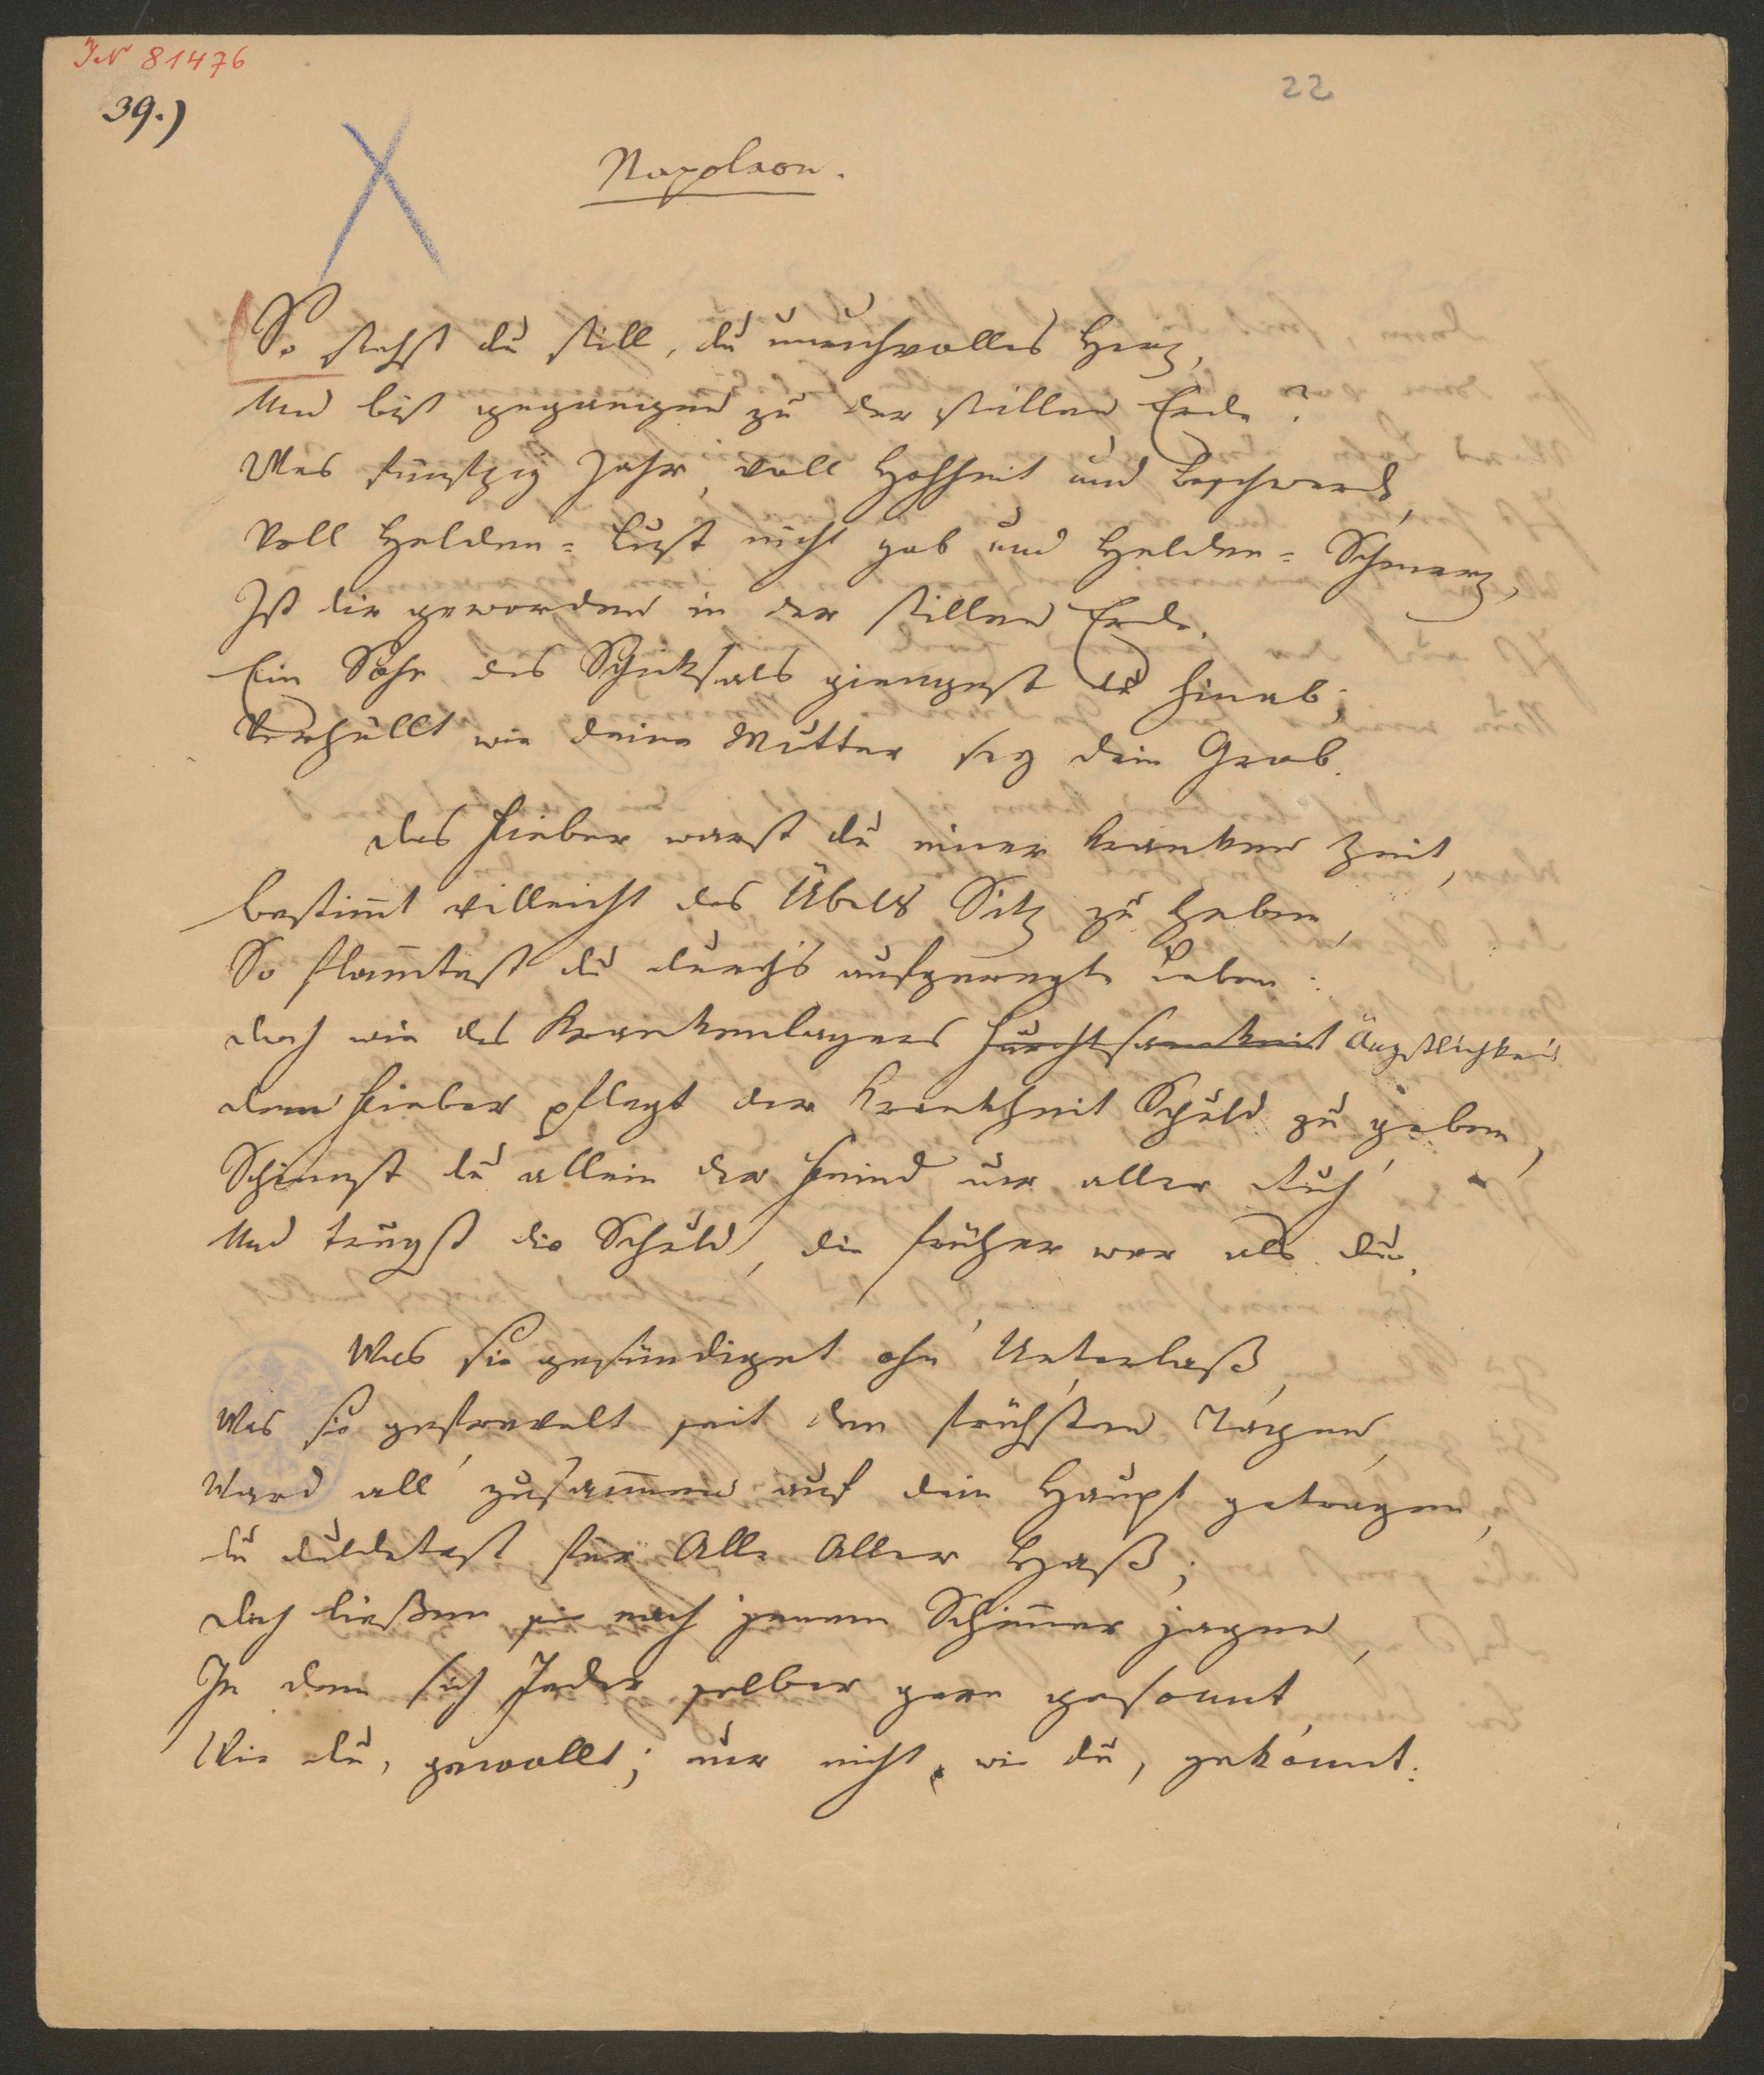 IN 81476
39.)
22
Napoleon.
So stehst du still, du unruhvolles Herz,
Und bist gegangen zu der stillen Erde?
Was fünfzig Jahr, voll Hohheit und Beschwerde,
Voll Helden-Lust nicht gab und Helden-Schmerz,
Ist dir geworden in der stillen Erde.
Ein Sohn des Schicksals giengest du hinab;
Verhüllt wie deine Mutter sey dein Grab.
Das Fieber warst du einer kranken Zeit,
bestimt villeicht des Übels Sitz zu heben,
So flamtest du durch's aufgeregte Leben:
doch wie des Krankenlagers Furchtsamkeit Ängstlichkeit
dem Fieber pflegt der Krankheit Schuld zu geben,
Schienst du allein der Feind nur aller Ruh'
Und trugst die Schuld, die früher war als du.
Was sie gesündiget ohn' Unterlaß,
Was sie gefrevelt seit den frühsten Tagen,
Ward all' zusammen auf dein Haupt getragen,
du duldetest für Alle Aller Haß;
doch ließen sie nach jenem Schimer jagen,
In dem sich Jeder selber gern gesonnt,
Wie du, gewollt; nur nicht, wie du, gekonnt.